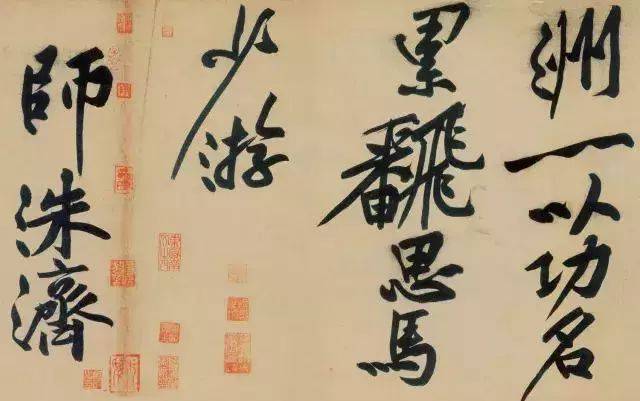 洲一以功名
累飜思馬
少游
師洙濟